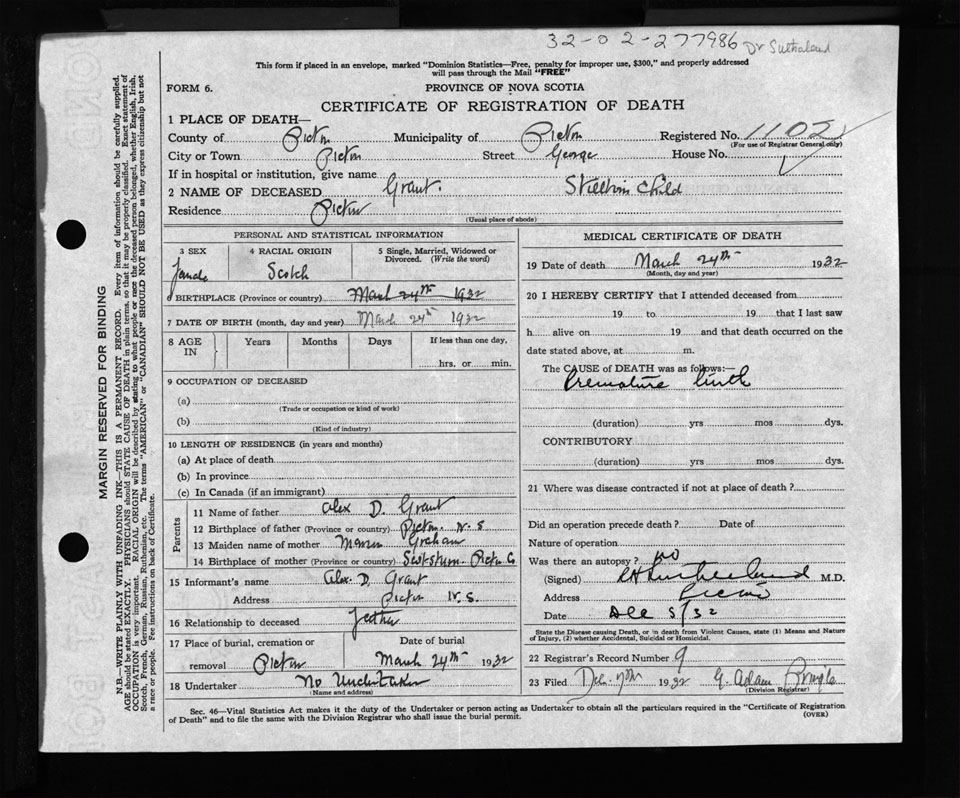 32-02-277986 Dr Sutherland
This form if placed in an envelope, marked "Dominion Statistics—Free, penalty for improper use, $300," and properly addressed
will pass through the Mail "FREE"
FORM 6. PROVINCE OF NOVA SCOTIA
CERTIFICATE OF REGISTRATION OF DEATH
1 PLACE OF DEATH—
County of Pictou Municipality of Pictou Registered No. 1102
(For use of Registrar General only)
City or Town Pictou Street George House No.
If in hospital or institution, give name
2 NAME OF DECEASED Grant. Stillborn Child
Residence Pictou
(Usual place of abode)
PERSONAL AND STATISTICAL INFORMATION
3 SEX 4 RACIAL ORIGIN 5 Single, Married, Widowed or
Divorced. (Write the word)
Female Scotch
6 BIRTHPLACE (Province or country) March 24th 1932
7 DATE OF BIRTH (month, day and year) March 24th 1932
8 AGE IN Years Months Days If less than one day,
hrs. or min.
9 OCCUPATION OF DECEASED
(a)
(Trade or occupation or kind of work)
(b)
(Kind of industry)
10 LENGTH OF RESIDENCE (in years and months)
(a) At place of death
(b) In province
(c) In Canada (if an immigrant)
Parents
11 Name of father Alex D. Grant
12 Birthplace of father (Province or country) Pictou N.S
13 Maiden name of mother Graham
14 Birthplace of mother (Province or country) Pictou Co
15 Informant's name Alex. D. Grant
Address Pictou N.S.
16 Relationship to deceased Father
17 Place of burial, cremation or Date of burial
removal Pictou March 24th 1932
18 Undertaker No Undertaker
(Name and address)
MEDICAL CERTIFICATE OF DEATH
19 Date of death March 24th 1932
(Month, day and year)
20 I HEREBY CERTIFY that I attended deceased from
19 to 19 that I last saw
h alive on 19 and that death occurred on the
date stated above, at m.
The CAUSE of DEATH was as follows:—
Premature birth
(duration) yrs mos dys.
CONTRIBUTORY
(duration) yrs. mos dys.
21 Where was disease contracted if not at place of death?
Did an operation precede death? Date of
Nature of operation
Was there an autopsy? no
(Signed) Sutherland M.D.
Address Pictou
Date Dec 5/32
State the Disease causing Death, or in death from Violent Causes, state (1) Means and Nature
of Injury, (2) whether Accidental, Suicidal or Homicidal.
22 Registrar's Record Number 9
23 Filed Dec. 1932 G. Adam Pringle
(Division Registrar)
Sec. 46—Vital Statistics Act makes it the duty of the Undertaker or person acting as Undertaker to obtain all the particulars required in the "Certificate of Registration
of Death" and to file the same with the Division Registrar who shall issue the burial permit. (OVER)
MARGIN RESERVED FOR BINDING
N.B.—WRITE PLAINLY WITH UNFADING INK—THIS IS A PERMANENT RECORD. Every item of information should be carefully supplied.
AGE should be stated EXACTLY. PHYSICIANS should STATE CAUSE OF DEATH in plain terms, so that it may be properly classified. Exact statement of
OCCUPATION is very important. RACIAL ORIGIN will be described by stating to what people or race the deceased person belonged, whether English, Irish,
Scotch, French, German, Russian, Ruthenian, etc. The terms "AMERICAN" or "CANADIAN" SHOULD NOT BE USED as they express citizenship but not
a race or people. See instructions on back of Certificate.